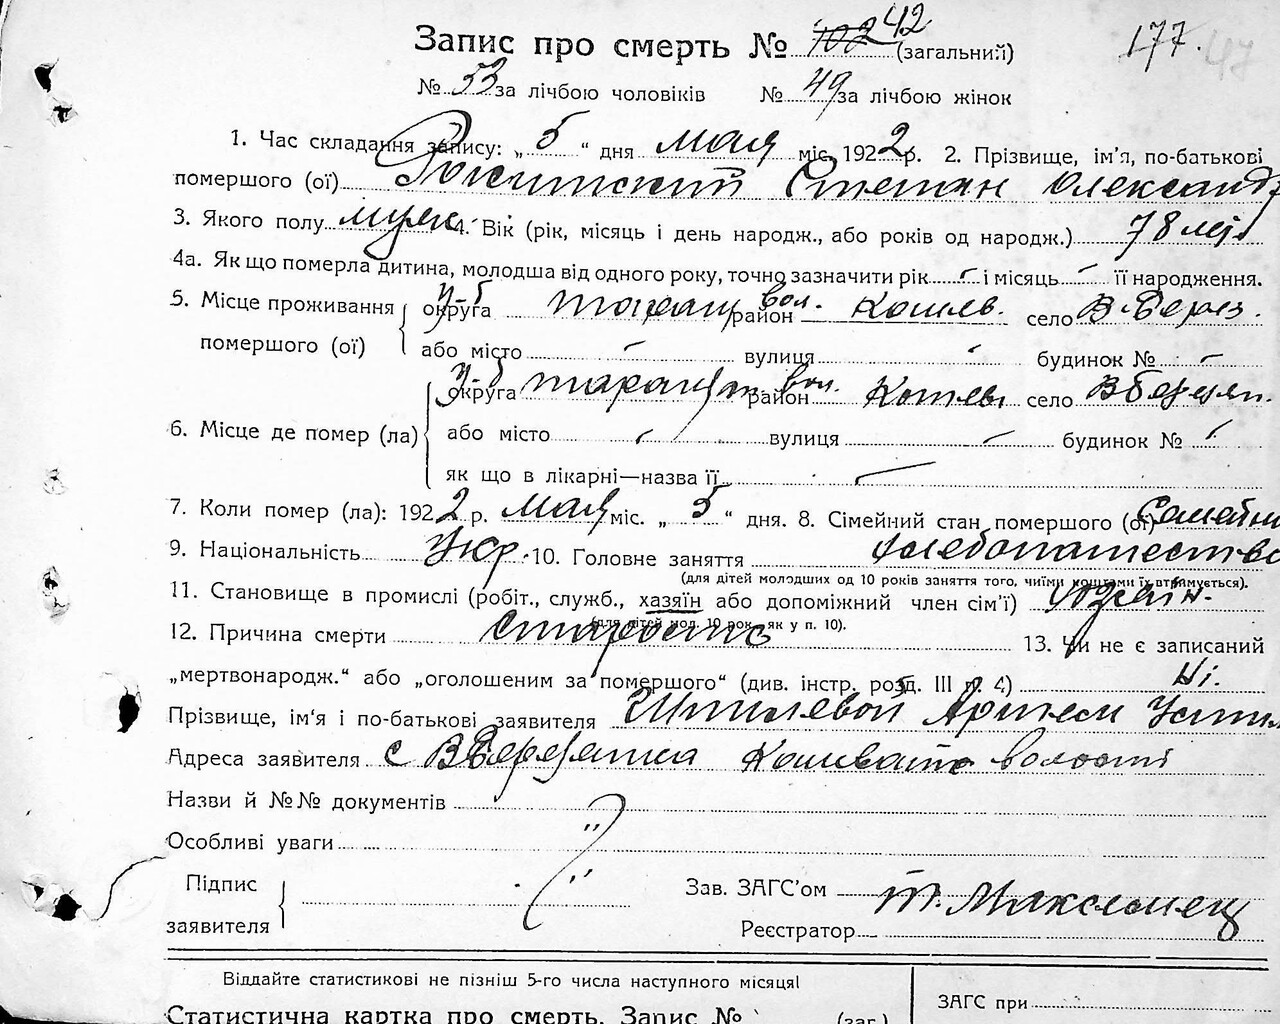 Запис про смерть № 102 42 (загальний) 177. 47
№ 53 за лічбою чоловіків № 49 за лічбою жінок
1. Час складання запису: „ 5 “ дня мая міс. 1922 р. 2. Прізвище, ім’я, по-батькові
померш­ого (ої) Степан Олександ
3. Якого полу муж. 4. Вік (рік, місяць і день народж., або років од народж.) 78 літ
4а. Як що померла дитина, молодша від одного року, точно зазначити рік – і місяць – її народження.
5. Місце проживання округа у-б таращ район вол. Кошев. село В-Берез.
помершого (ої) або місто – вулиця – будинок № –
округа у-б таращ район вол. село
6. Місце де помер (ла) або місто – вулиця – будинок № –
як що в лікарні—назва її –
7. Коли помер (ла): 1922 р. мая міс. „ 5 “ дня. 8. Сімейний стан помершого (ої) Семейни
9. Національність Укр. 10. Головне заняття хлебопашество
(для дітей молодших од 10 років заняття того, чиїми коштами їх втримується).
11. Становище в промислі (робіт., служб., хазяїн або допоміжний член сім’ї) хозяїн.
(для дітей мол. 10 рок., як у п. 10).
12. Причина смерти старость 13. Чи не є записаний
„мертвонародж.“ або „оголошеним за помершого“ (див. інстр. розд. III п. 4) Ні.
Прізвище, ім’я і по-батькові заявителя Шпилевой Артем Устим
Адреса заявителя с В Березянка Кошевато волості
Назви й №№ документів
Особливі уваги "
Підпис Зав. ЗАГС’ом
заявителя Реєстратор
Віддайте статистикові не пізніш 5-го числа наступного місяця!
ЗАГС при
Статистична картка про смерть. Запис № (заг.)